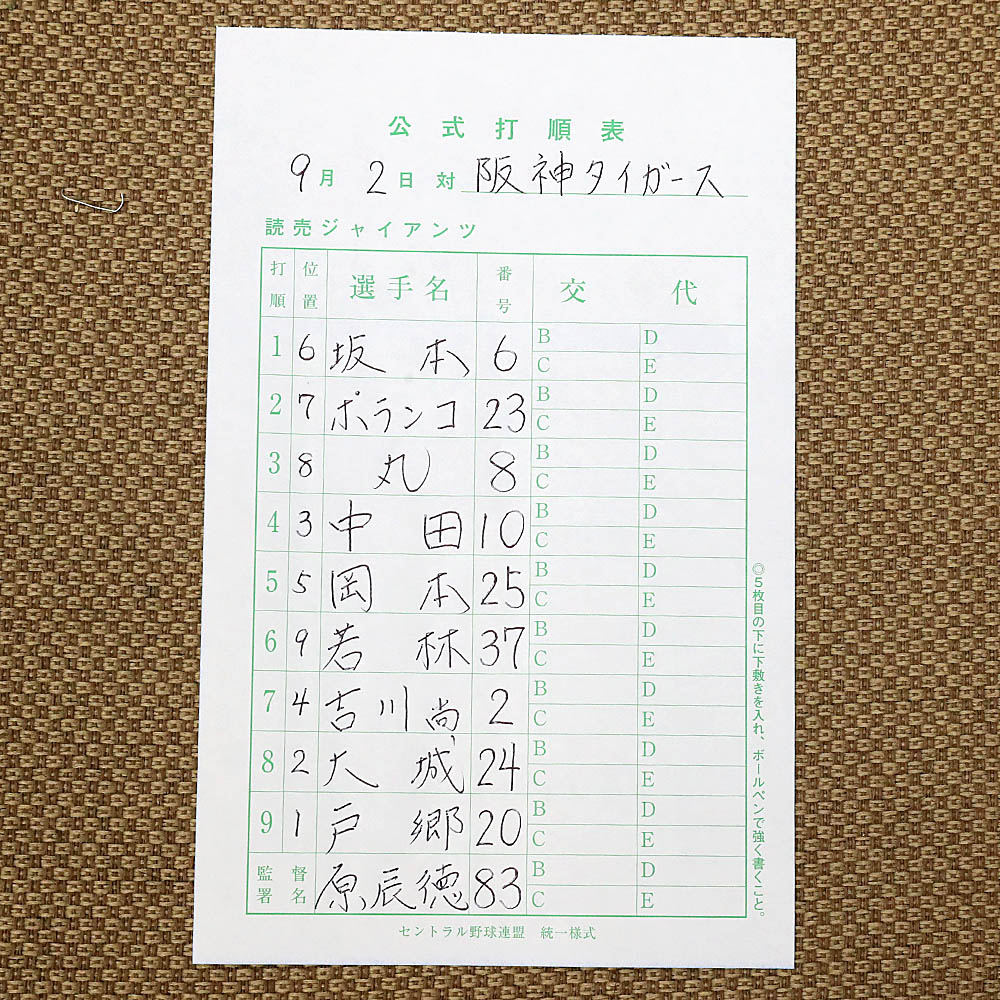 公式打順表
9月2日対 阪神タイガース
読売ジャイアンツ
打順 位置 選手名 番号 交代
1 6 坂本 6 B D
C E
2 7 ポランコ 23 B D
C E
3 8 丸 8 B D
C E
4 3 中田 10 B D
C E
5 5 岡本 25 B D
C E
6 9 若林 37 B D
C E
7 4 吉川尚 2 B D
C E
8 2 大城 24 B D
C E
9 1 戸郷 20 B D
C E
監督署名 原辰徳 83 B D
C E
◎5枚目の下に下敷きを入れ、ボールペンで強く書くこと。
セントラル野球連盟 統一様式